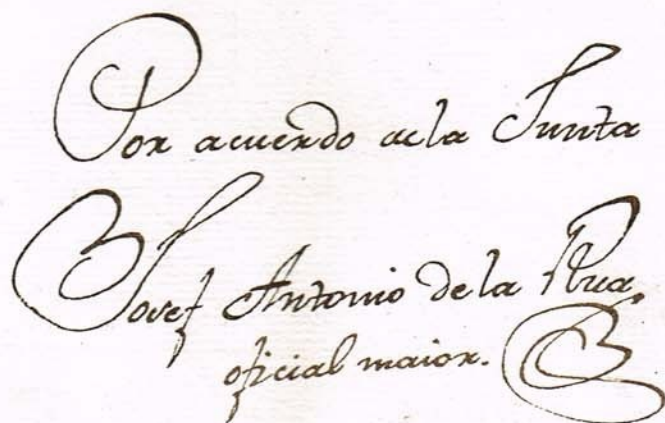 Por acuerdo de la Junta
Josef Antonio de la Rua
oficial maior.